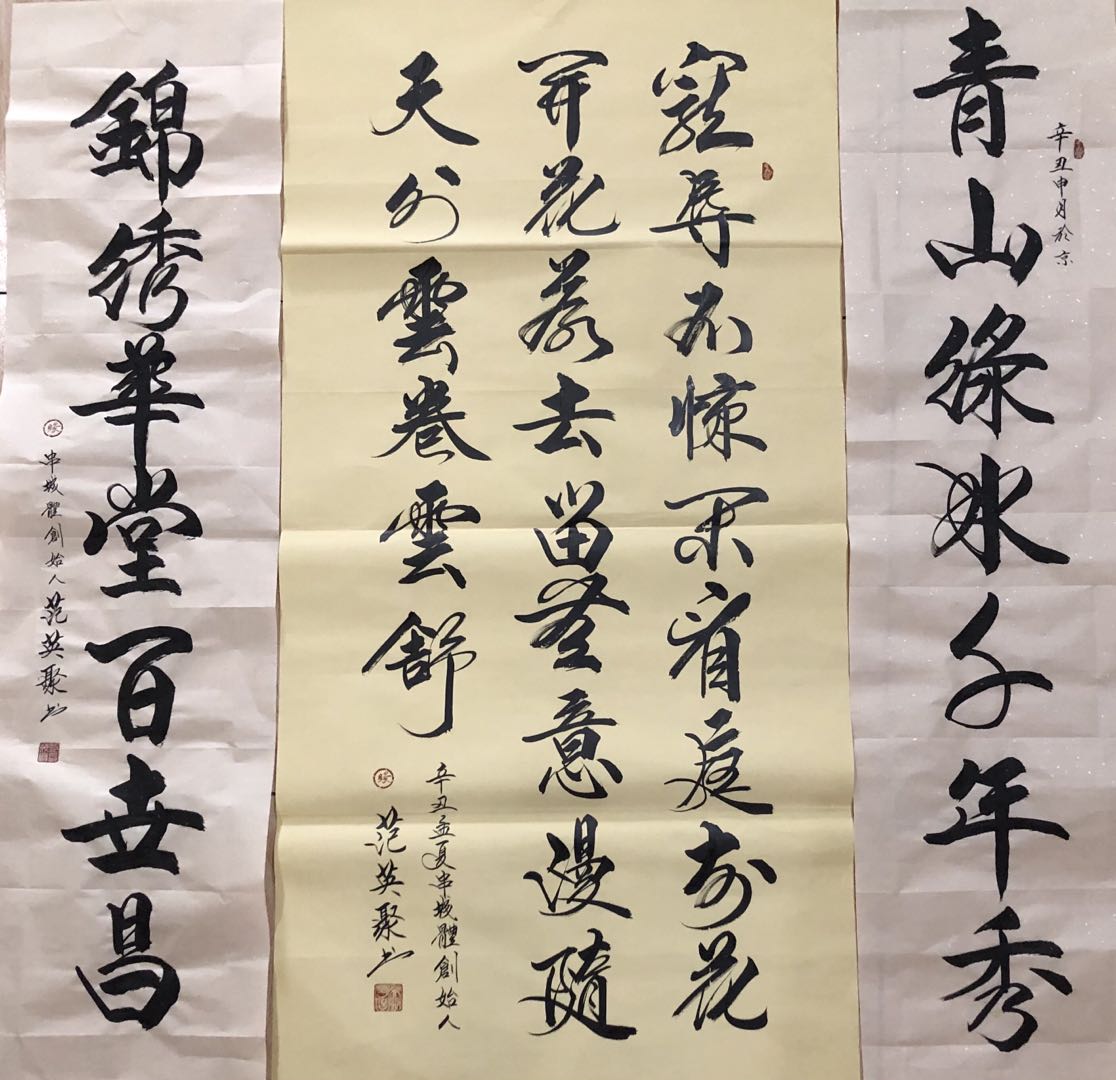 辛丑申月於京
青山綠水千年秀
寵辱不惊闲看庭前花
开花落去留無意漫隨
天外雲卷雲舒
辛丑孟夏串城體創始人
范英聚书
錦绣華堂百世昌
串城體創始人范英聚书